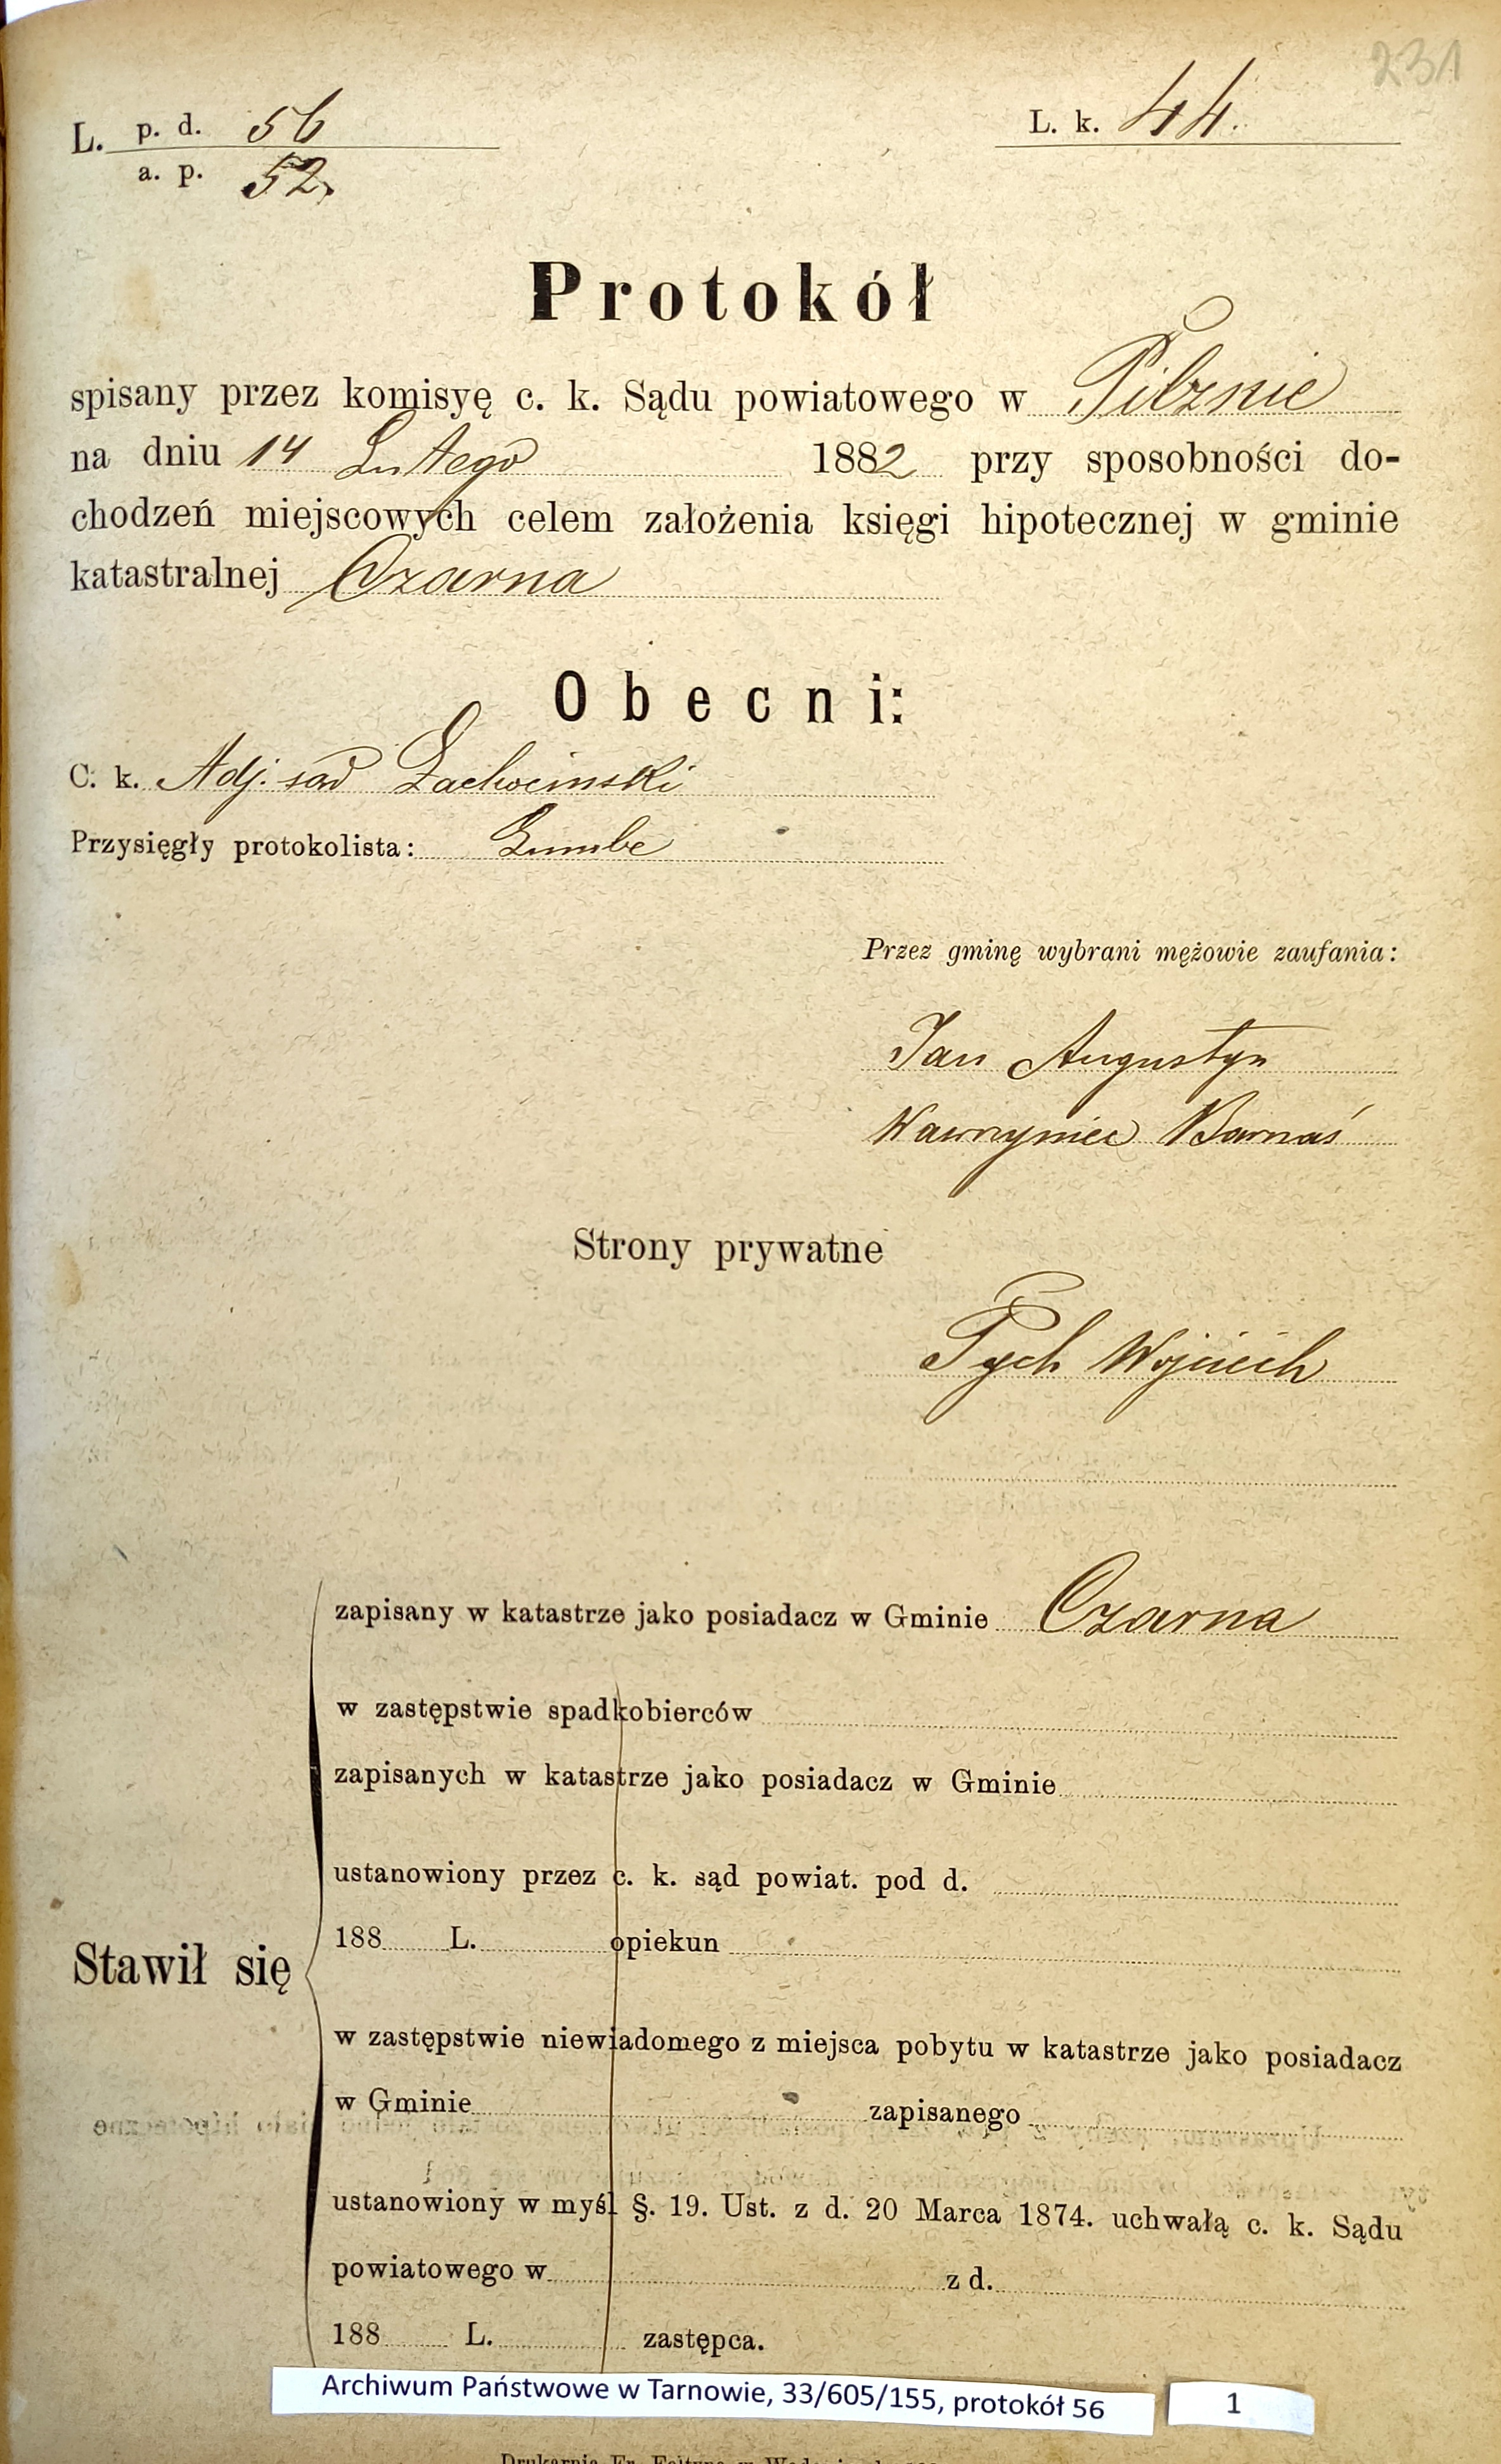 231
L. p. d. 56
a. p. 52.
L. k. 44.
Protokół
spisany przez komisyę c. k. Sądu powiatowego w Pilznie
na dniu 14 Lutego 1882 przy sposobności do-
chodzeń miejscowych celem założenia księgi hipotecznej w gminie
katastralnej Czarna
Obecni:
C. k. Adj. sąd
Przysięgły protokolista:
Przez gminę wybrani mężowie zaufania:
Jan Augustyn
Wawrzyniec Barnaś
Strony prywatne
Pych Wojciech
zapisany w katastrze jako posiadacz w Gminie Czarna
w zastępstwie spadkobierców
zapisanych w katastrze jako posiadacz w Gminie
ustanowiony przez c. k. sąd powiat. pod d.
188 L. opiekun
Stawił się
w zastępstwie niewiadomego z miejsca pobytu w katastrze jako posiadacz
w Gminie zapisanego
ustanowiony w myśl §. 19. Ust. z d. 20 Marca 1874. uchwałą c. k. Sądu
powiatowego w z d.
188 L. zastępca.
Archiwum Państwowe w Tarnowie, 33/605/155, protokół 56
1